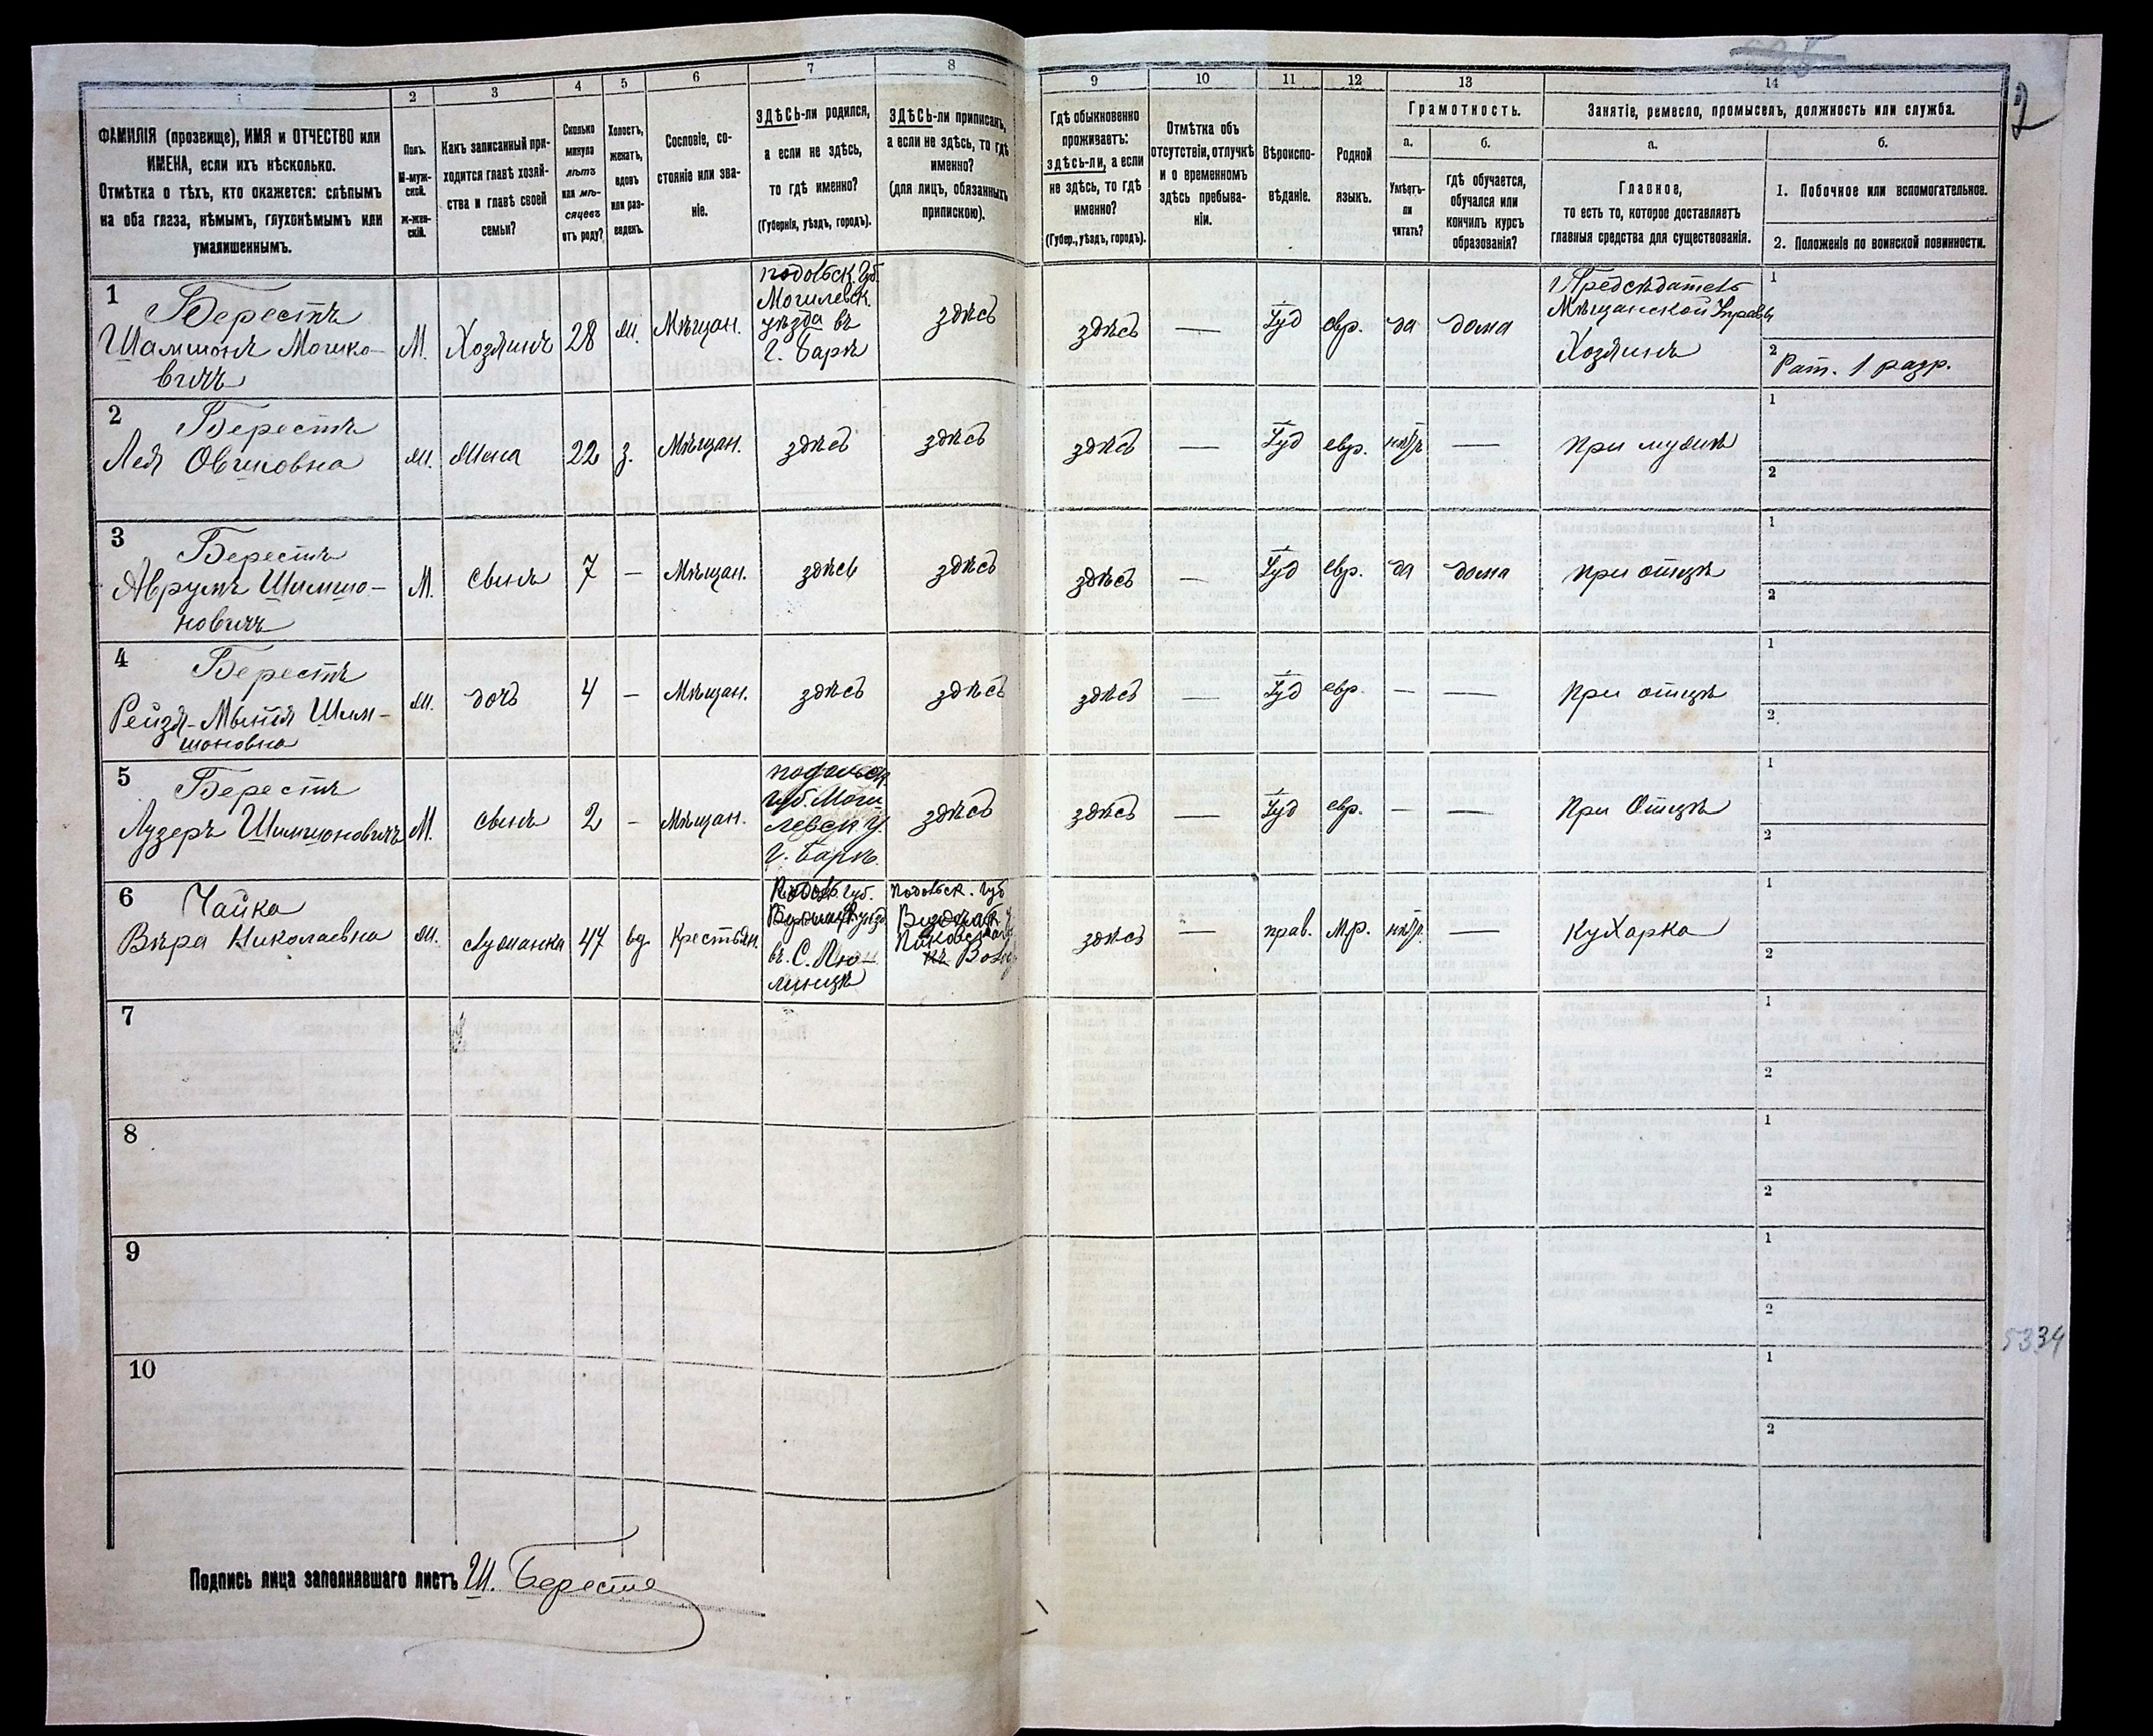 1 2 3 4 5 6 7 8 9 10 11 12 13 14
ФАМИЛІЯ (прозвище), ИМЯ и ОТЧЕСТВО или
ИМЕНА, если ихъ нѣсколько.
Отмѣтка о тѣхъ, кто окажется: слѣпымъ
на оба глаза, нѣмымъ, глухонѣмымъ или
умалишеннымъ.
Полъ.
М-муж-
ской.
Ж-жен-
скій.
Какъ записанный при-
ходится главѣ хозяй-
ства и главѣ своей
семьи?
Сколько
минуло
лѣтъ
или мѣ-
сяцевъ
отъ роду?
Холостъ,
женатъ,
вдовъ
или раз-
веденъ.
Сословіе, со-
стояніе или зва-
ніе.
ЗДѢСЬ-ли родился,
а если не здѣсь,
то гдѣ именно?
(Губернія, уѣздъ, городъ).
ЗДѢСЬ-ли приписанъ,
а если не здѣсь, то гдѣ
именно?
(для лицъ, обязанныхъ
припискою).
Гдѣ обыкновенно
проживаетъ:
здѣсь-ли, а если
не здѣсь, то гдѣ
именно?
(Губер., уѣздъ, городъ).
Отмѣтка объ
отсутствіи, отлучкѣ
и о временномъ
здѣсь пребыва-
ніи.
Вѣроиспо-
вѣданіе.
Родной
языкъ.
Грамотность.
а.
Умѣетъ-
ли
читать?
б.
Гдѣ обучается,
обучался или
кончилъ курсъ
образованія?
Занятіе, ремесло, промыселъ, должность или служба.
а.
Главное,
то есть то, которое доставляетъ
главныя средства для существованія.
б.
1. Побочное или вспомогательное.
2. Положеніе по воинской повинности.
2
1
Берестъ
Шамшонъ Мошко-
вичъ
М. Хозяинъ 28 ж. Мѣщан.
Подольск. Губ.
Могилевск.
уѣзда въ
г. Барѣ
здѣсь здѣсь — Іуд евр. да дома
Предсѣдатель
Мѣщанской Управы
Хозяинъ
1
2 Рат. 1 разр.
2
Берестъ
Лея Овшиовна
ж. Жена 22 з. Мѣщан. здѣсь здѣсь здѣсь — Іуд евр. нѣтъ — при мужѣ
1
2
3
Берестъ
Аврумъ Шимшо-
новичъ
М. сынъ 7 — Мѣщан. здѣсь здѣсь здѣсь — Іуд евр. да дома при отцѣ
1
2
4
Берестъ
Рейзя- Шим-
шоновна
ж. дочь 4 — Мѣщан. здѣсь здѣсь здѣсь — Іуд евр. — — При отцѣ
1
2
5
Берестъ
Лузеръ Шимшоновичъ
М. сынъ 2 — Мѣщан.
подольск.
губ. Моги
левск у.
г. Барѣ.
здѣсь здѣсь — Іуд евр. — — При Отцѣ
1
2
6
Чайка
Вѣра Николаевна
ж. служанка 47 вд. Крестьян.
Подоль. губ.
уѣзд
въ С. Лю-
линцѣ
Подольск. Губ
здѣсь — прав. Мр. нѣтъ — Кухарка
1
2
7
1
2
8
1
2
9
1
2
10
1
2
5334
Подпись лица заполнявшаго листъ Ш. Берестъ